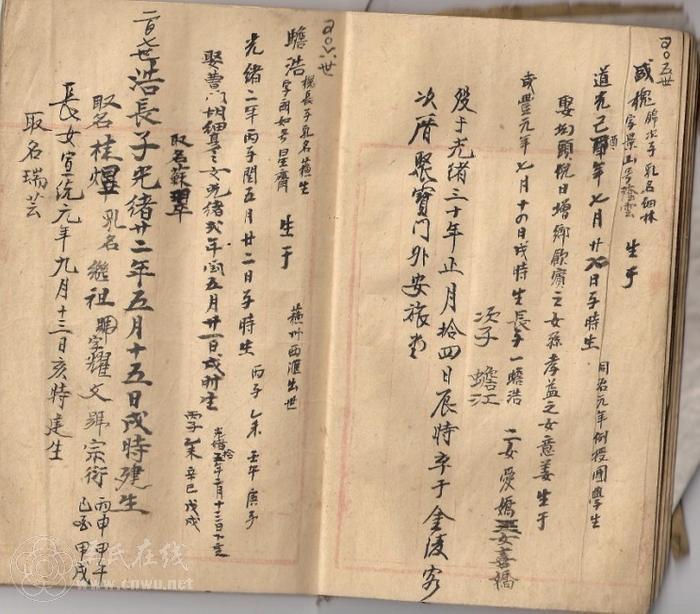 二百五世
咸槐 牌次子乳名細林
字景山号 生于
道光己酉年七月廿 日子時生
同治元年例授國學生
娶 頭倪日增鄉飲賓之女孫孝益之女意姜生于
咸豐元年七月十 日戌時生長子一蟾浩 二女愛嬌 女喜嬌
次子 蟾江
殁于光緒三十年正月拾四日辰時卒于金陵客
次厝聚寶門外安旅堂
二百六世
蟾浩 槐長子乳名蘓生
字國如号星齋 生于 蘓州西滙出世
光緒二年丙子閏五月廿二日子時生 丙子 乙未 壬午 庚子
娶曹門 女光緒弍年閏五月廿一日戌时生 丙子 乙未 辛巳 戊戌
取名蘇
光緒 年二月十三日
二百七世 浩長子光緒廿二年五月十五日戌時建生
取名桂煜 乳名繼祖 字耀文 號宗衍 丙申 甲午 甲戌
長女宣統元年九月十三日亥時建生
取名瑞芸
吴氏在线
www.cnwu.net